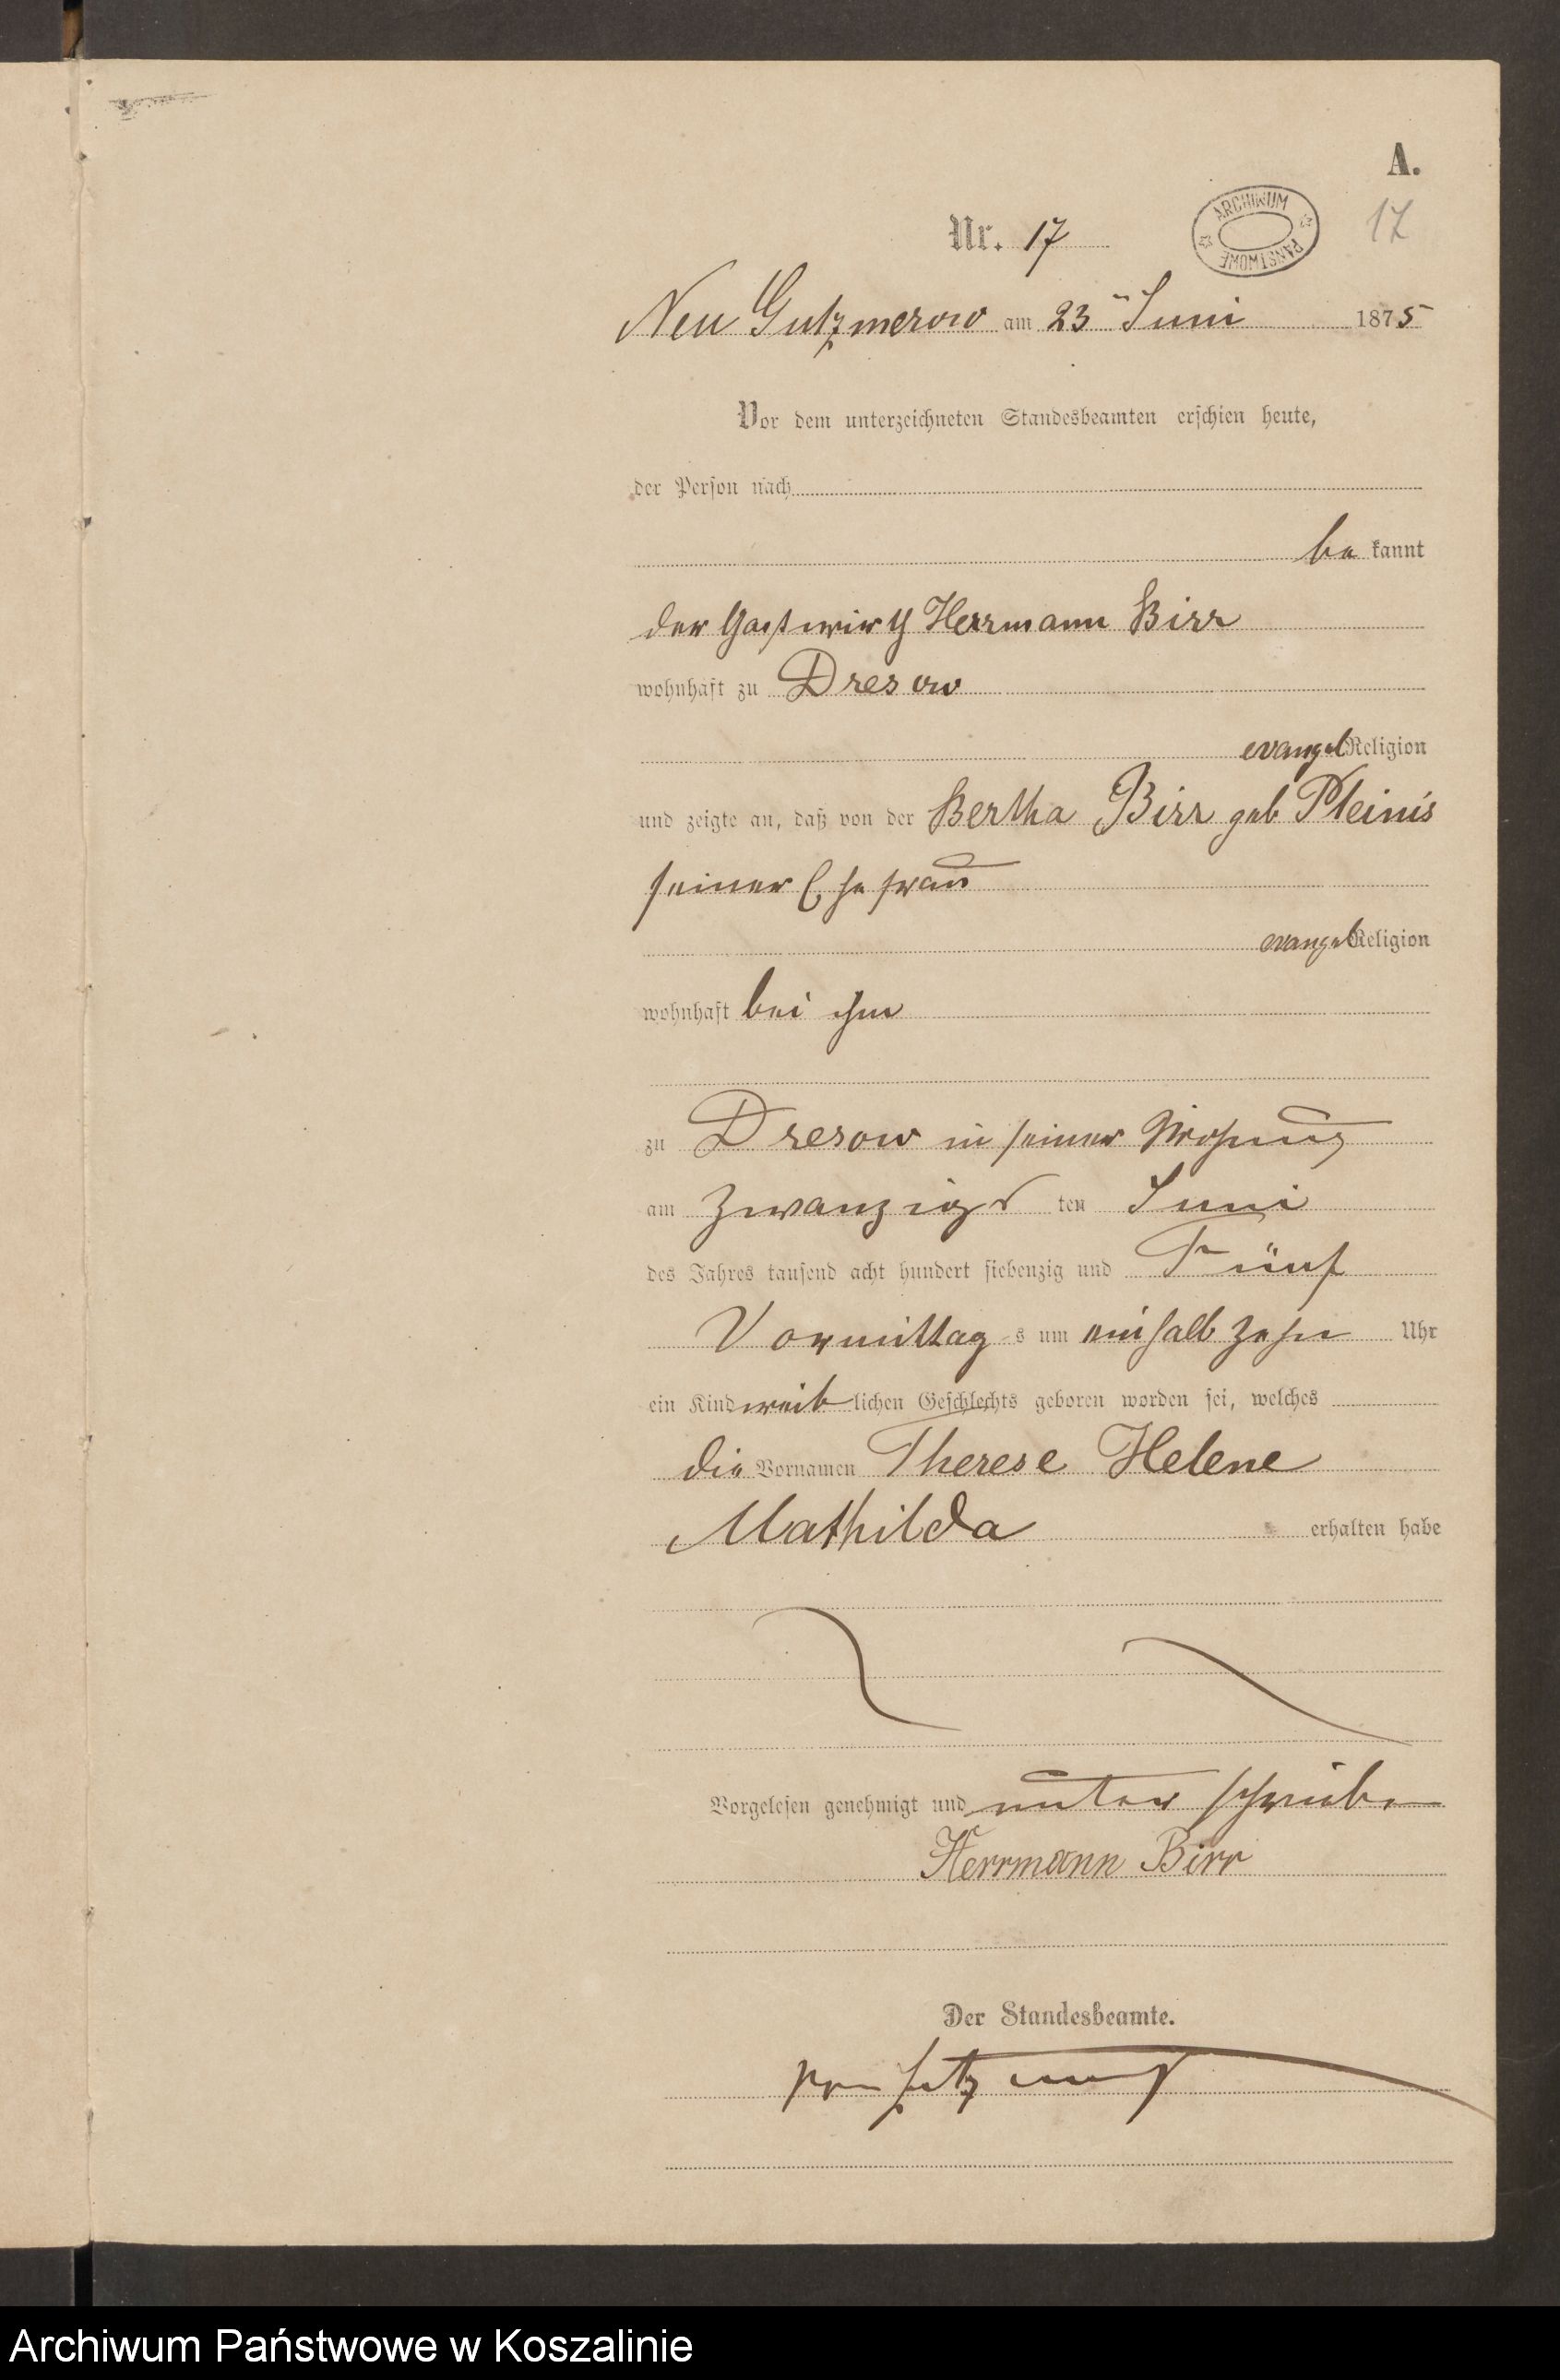 A.
Nr. 17
ARCHIWUM PAŃSTWOWE
17
Neu Gutzmerow am 23ten Juni 1875
Vor dem unterzeichneten Standesbeamten erschien heute,
der Person nach
be kannt
der Gastwirth Herrmann Birr
wohnhaft zu Dresow
evangel Religion
und zeigte an, daß von der Bertha Birr geb Pleinis
seiner Ehefrau
evangel Religion
wohnhaft bei ihm
zu Dresow in seiner Wohnung
am Zwanzigs ten Juni
des Jahres tausend acht hundert siebenzig und Fünf
Vormittag s um einhalb zehn Uhr
ein Kind weib lichen Geschlechts geboren worden sei, welches
die Vornamen Therese Helene
Mathilda erhalten habe
Vorgelesen genehmigt und unterschrieben
Herrmann Birr
Der Standesbeamte.
Archiwum Państwowe w Koszalinie